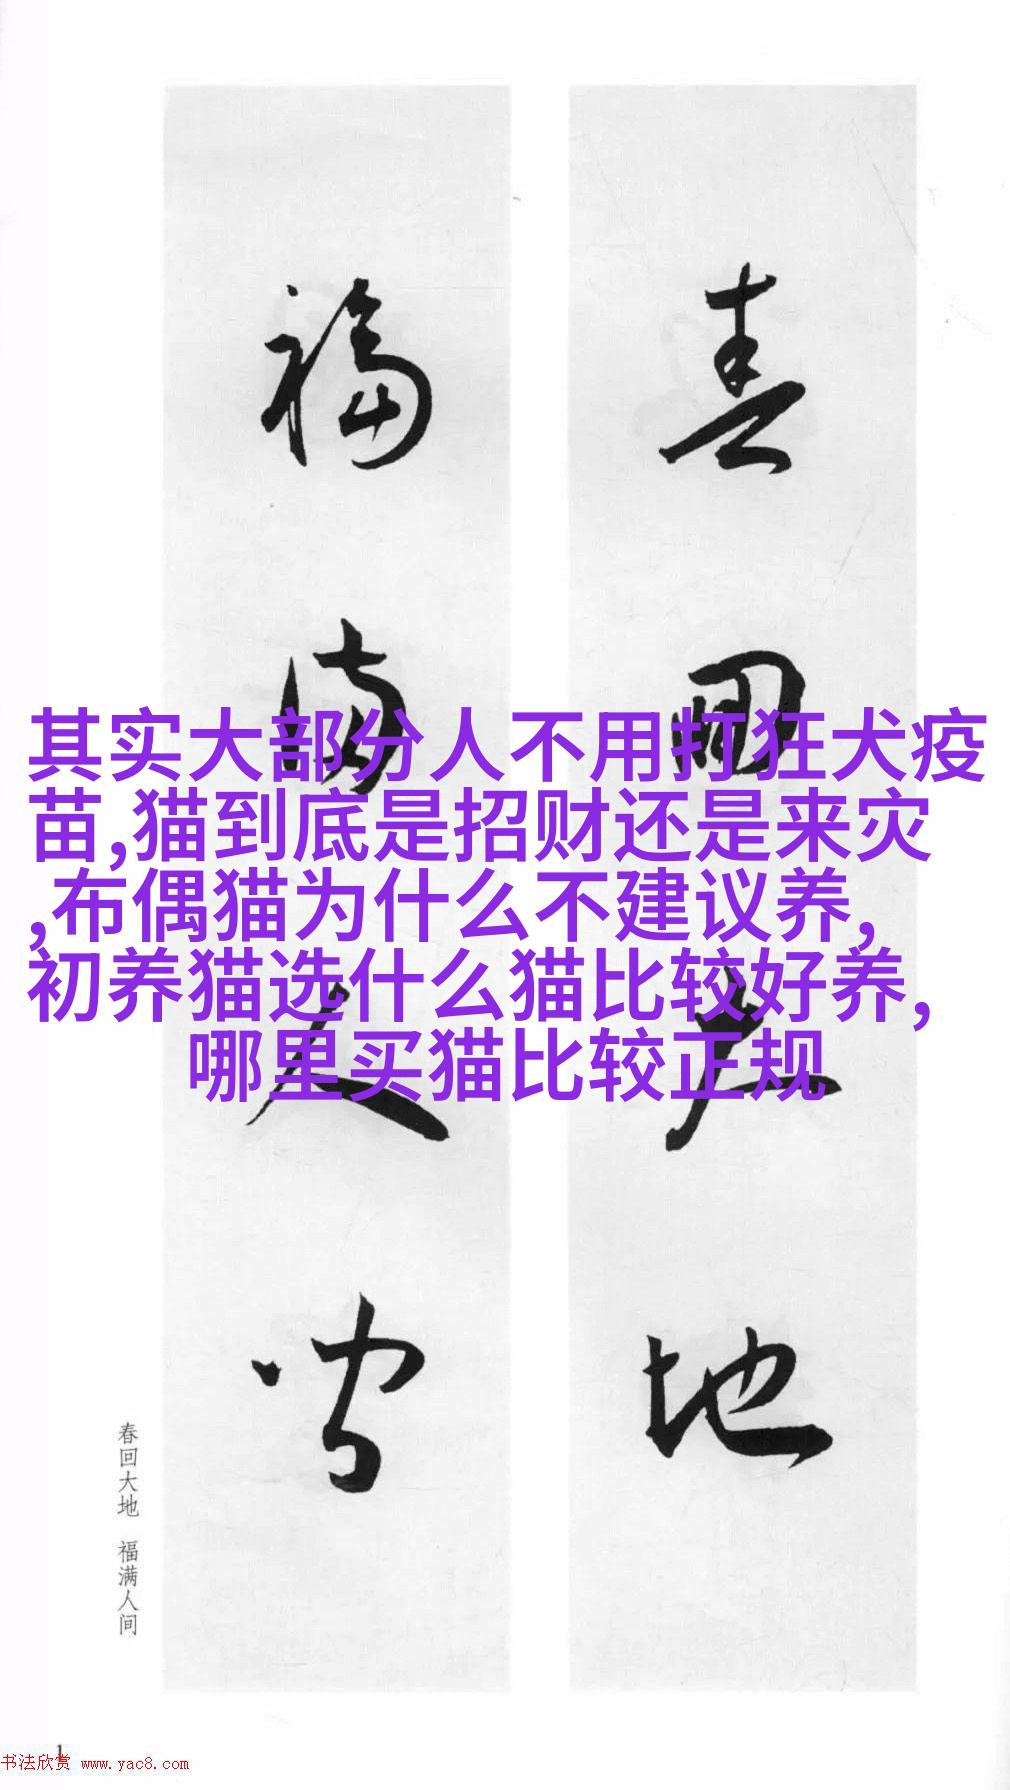 春回大地
福满人间
其实大部分人不用打狂犬疫
苗,猫到底是招财还是来灾
,布偶猫为什么不建议养,
初养猫选什么猫比较好养,
哪里买猫比较正规
春回大地 福满人间
1
书法欣赏 www.yac8.com